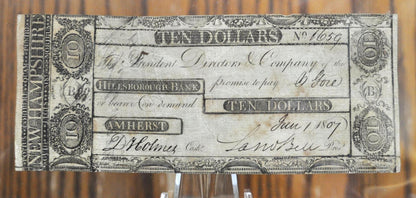 TEN DOLLARS No 1659
The President Directors & Company of the
HILLSBOROUGH BANK promise to pay
or bearer on demand TEN DOLLARS
AMHERST Jan 1 1807
D Holmes Cash.r Saml Bell Pres.t
NEW HAMPSHIRE
10
10
10
10
B
B